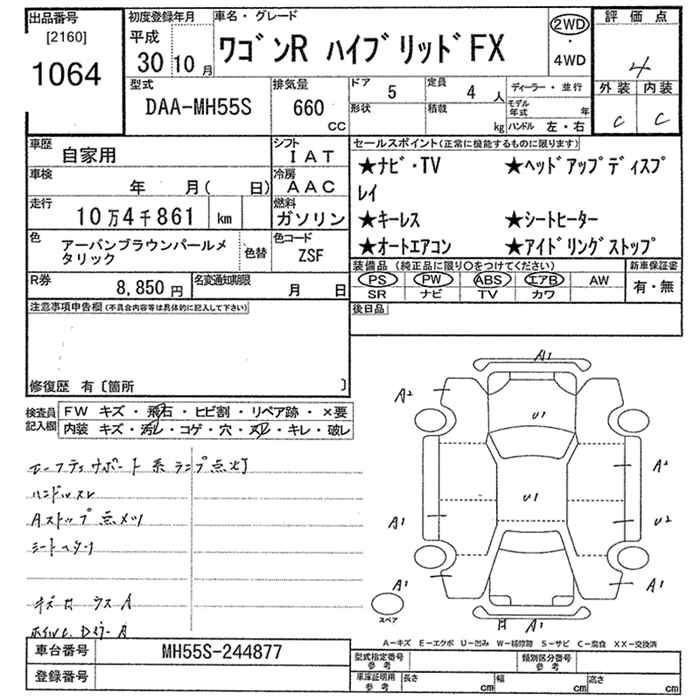 出品番号
[2160]
1064
初度登録年月
平成
30 10 月
車名・グレード
ワゴンR ハイブリッドFX
2WD
・
4WD
評価点
4
外装 内装
C C
型式
DAA-MH55S
排気量
660
CC
ドア
5
定員
4 人
形状
積載
kg
ディーラー・並行
モデル年式 年
ハンドル 左・右
車歴
自家用
シフト
IAT
車検
年 月( 日)
冷房
AAC
走行
10万4千861 km
燃料
ガソリン
色
アーバンブラウンパールメ
タリック
色替
色コード
ZSF
R券
8,850 円
名変通知期限
月 日
セールスポイント(正常に機能するものに限ります)
★ナビ・TV ★ヘッドアップディスプ
レイ
★キーレス ★シートヒーター
★オートエアコン ★アイドリングストップ
装備品 (純正品に限り○をつけてください)
PS PW ABS エアB AW
SR ナビ TV カワ
新車保証書
有・無
後日品
注意事項申告欄(不具合内容等は具体的に記入して下さい)
修復歴 有〔箇所 〕
検査員
記入欄
FW キズ・飛石・ヒビ割・リペア跡・×要
内装 キズ・汚レ・コゲ・穴・スレ・キレ・破レ
セーフティサポート系ランプ点灯
ハンドルスレ
Aストップ点メツ
シートヘタリ
A1
A2
U1
A2
U1
A1
U2
A1
A1
スペア
A1
A-キズ E-エクボ U-凹み W-補修跡 S-サビ C-腐食 XX-交換済
車台番号
MH55S-244877
登録番号
型式指定番号
参考
類別区分番号
参考
車庫証明用
参考
長さ cm
幅 cm
高さ cm